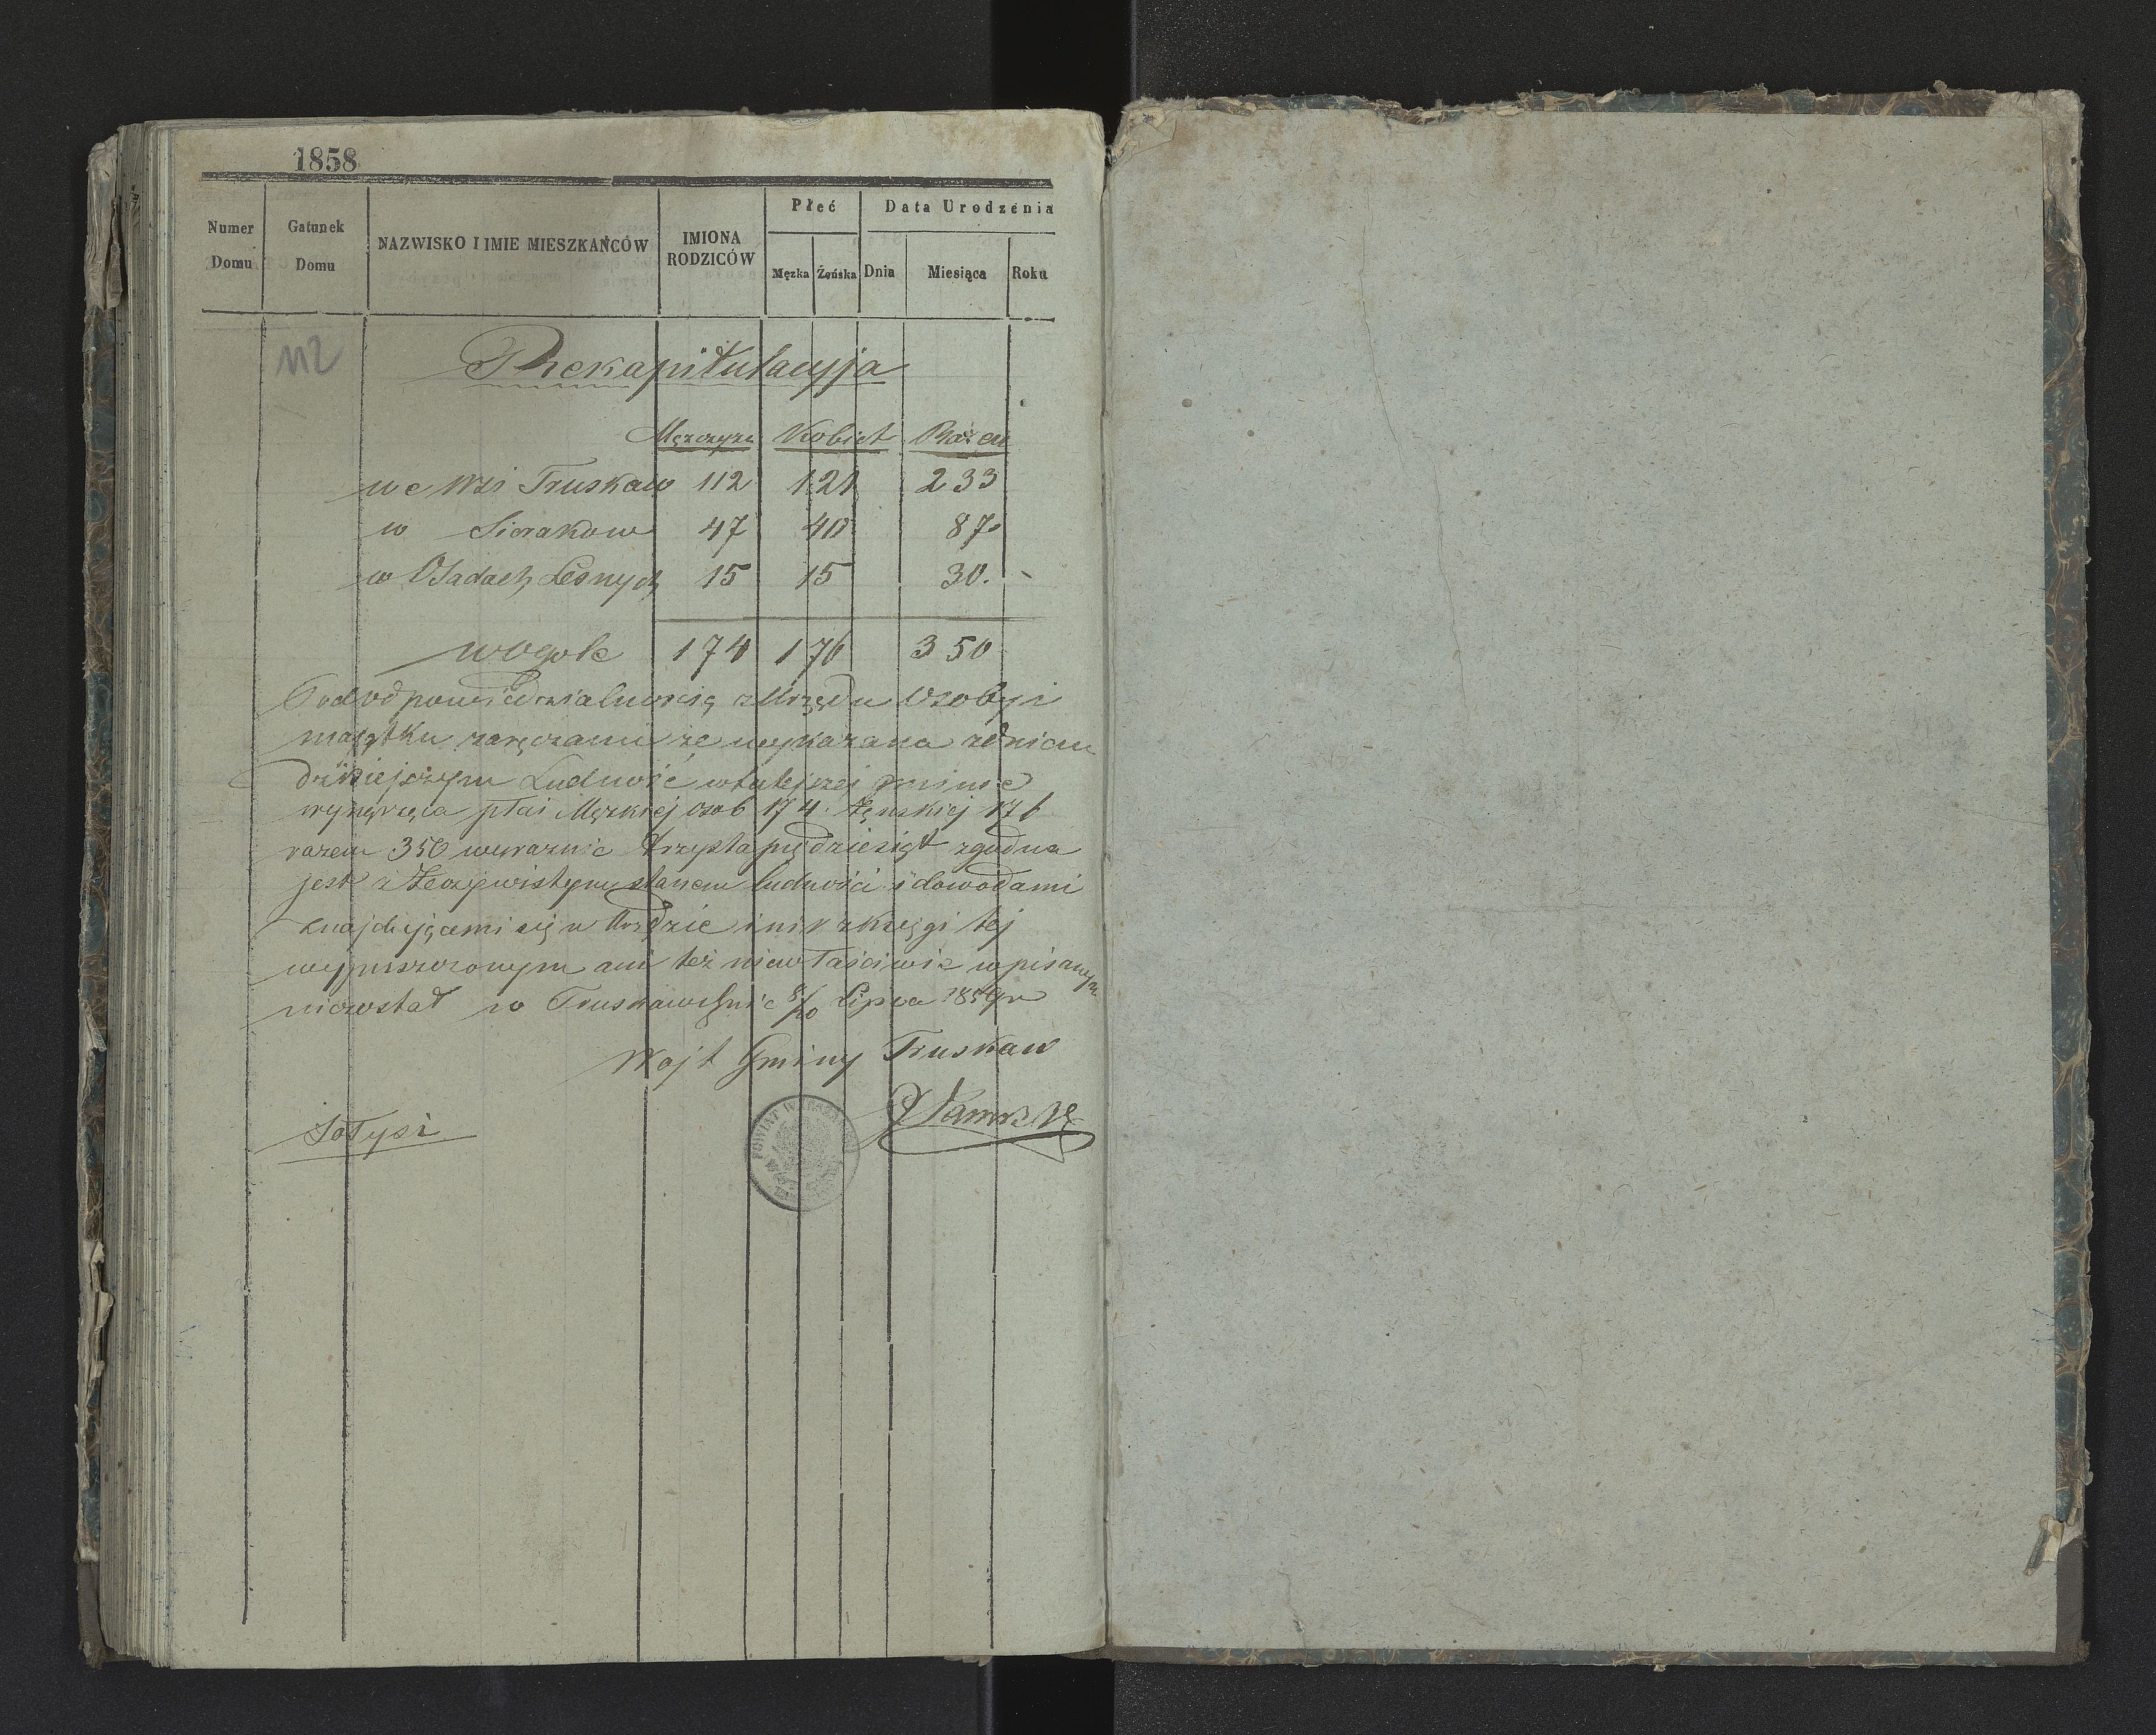 1858
Numer Domu
Gatunek Domu
NAZWISKO I IMIE MIESZKAŃCÓW
IMIONA RODZICÓW
Płeć
Męzka Żeńska
Data Urodzenia
Dnia Miesiąca Roku
112
Rekapitulacyja
Mężczyzn Kobiet Razem
we Wsi Truskaw 112 121 233
w Sierakow 47 40 87.
w Osadach Lesnych 15 15 30.
wogole 174 176 350
Pod odpowiedzialnoscią z Urzędu Osoby i
maiątku zaręczam że wykazana z dniem
dzisiejszym Ludność w tutejszej gminie
wynosząca płci Męzkiej osob 174. Żenskiej 176
razem 350 wyraznie trzysta pięćdziesiąt zgodna
jest z Rzeczywistym stanem ludności i dowodami
znajdującemi się w Urzędzie i nikt z księgi tej
wypuszczonym ani też niewłaściwie wpisanym
niezostał w Truskawiu dnia 8/20 Lipca 1859 r
Wojt Gminy Truskaw
Sołtysi
POWIAT WARSZAWSKI